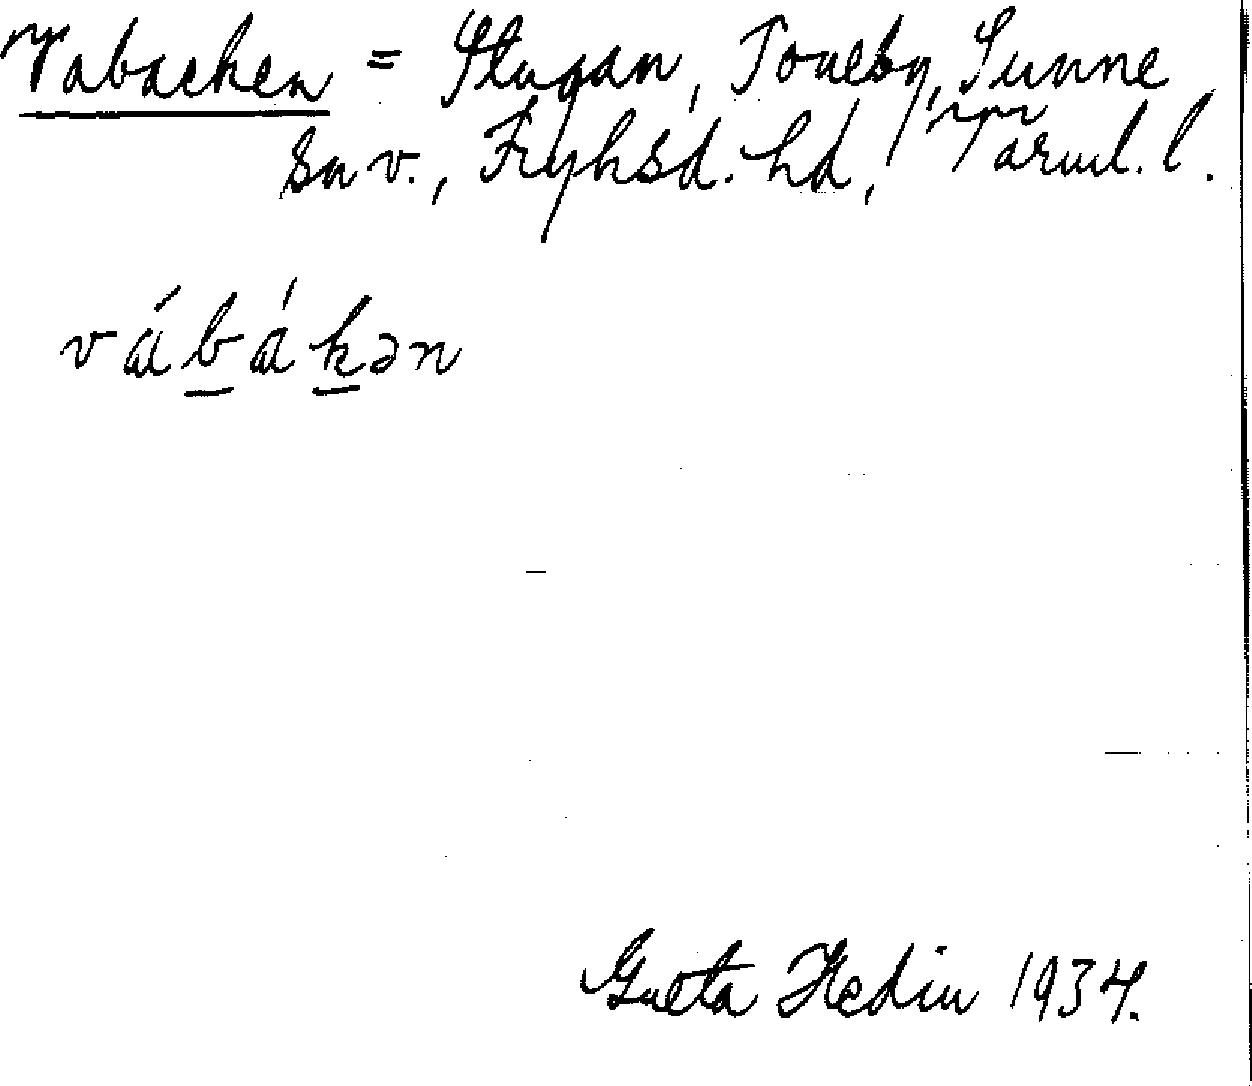 Vabacken = Stugan, Toneby, Sunne
sn v., Fryksd. hd, Värml. l.
vábákən
Greta Hedin 1934.